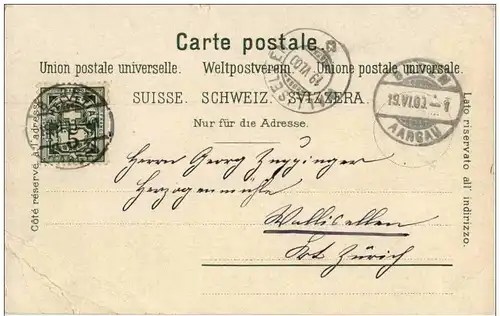 Carte postale.
Union postale universelle. Weltpostverein. Unione postale universale.
SUISSE. SCHWEIZ. SVIZZERA.
Nur für die Adresse.
Côté réservé à l'adresse.
Lato riservato all' indirizzo.
19.VI.00
BADEN
19.VI.00.-1
AARGAU
Herrn Georg Zuppinger
Herzogenmühle
Wallisellen
Kt Zürich